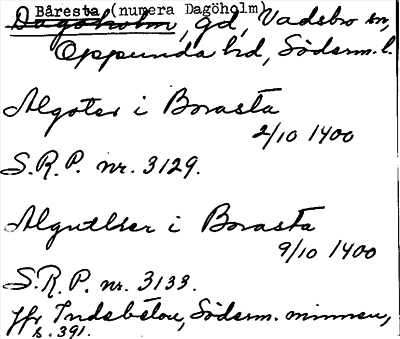 Båresta (numera Dagöholm)
Dagöholm, gd, Vadsbro sn,
Oppunda hd, Söderm. l.
Algoter i Borasta
2/10 1400
S.R.P. nr. 3129.
Alguther i Borasta
9/10 1400
S.R.P. nr. 3133.
Jfr Indebetou, Söderm. minnen,
s. 391.